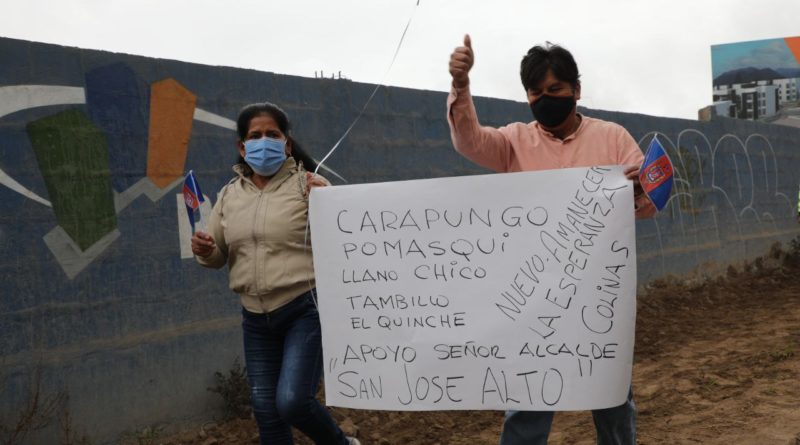 CARAPUNGO
POMASQUI
LLANO CHICO
TAMBILLO
EL QUINCHE
NUEVO AMANECER
LA ESPERANZA
COLINAS
"APOYO SEÑOR ALCALDE
SAN JOSE ALTO"